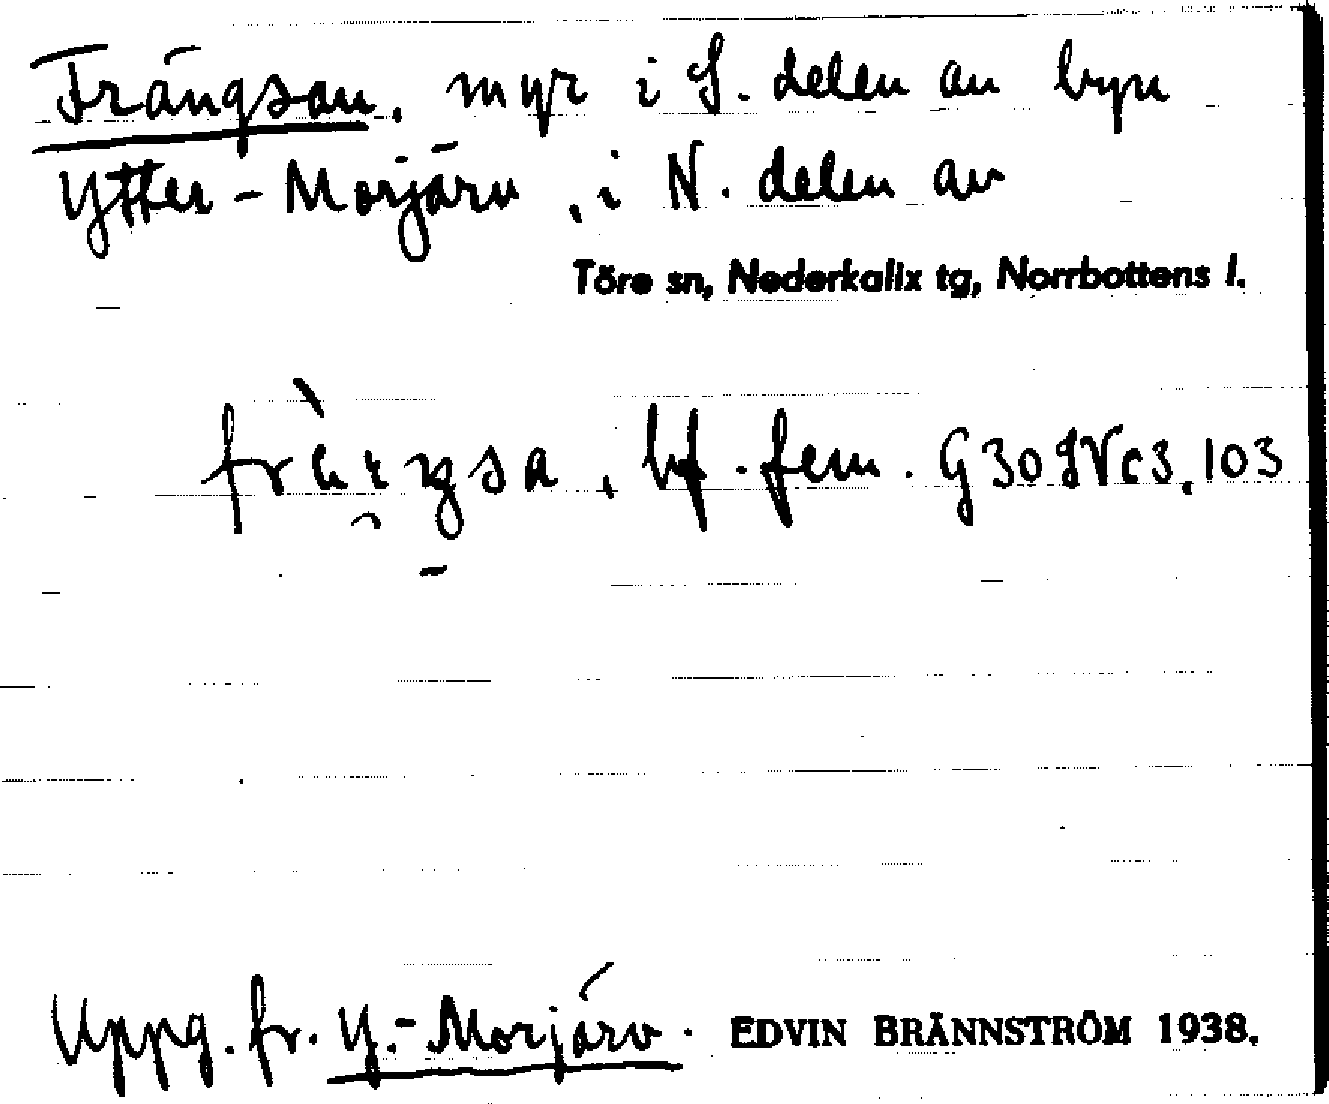 Frängsan, myr i S. delen av byn
Ytter-Morjärv, i N. delen av
Töre sn, Nederkalix tg, Norrbottens l.
bf. fem. G30 IV c3, 103
Uppg. fr. Y.-Morjärv. EDVIN BRÄNNSTRÖM 1938.